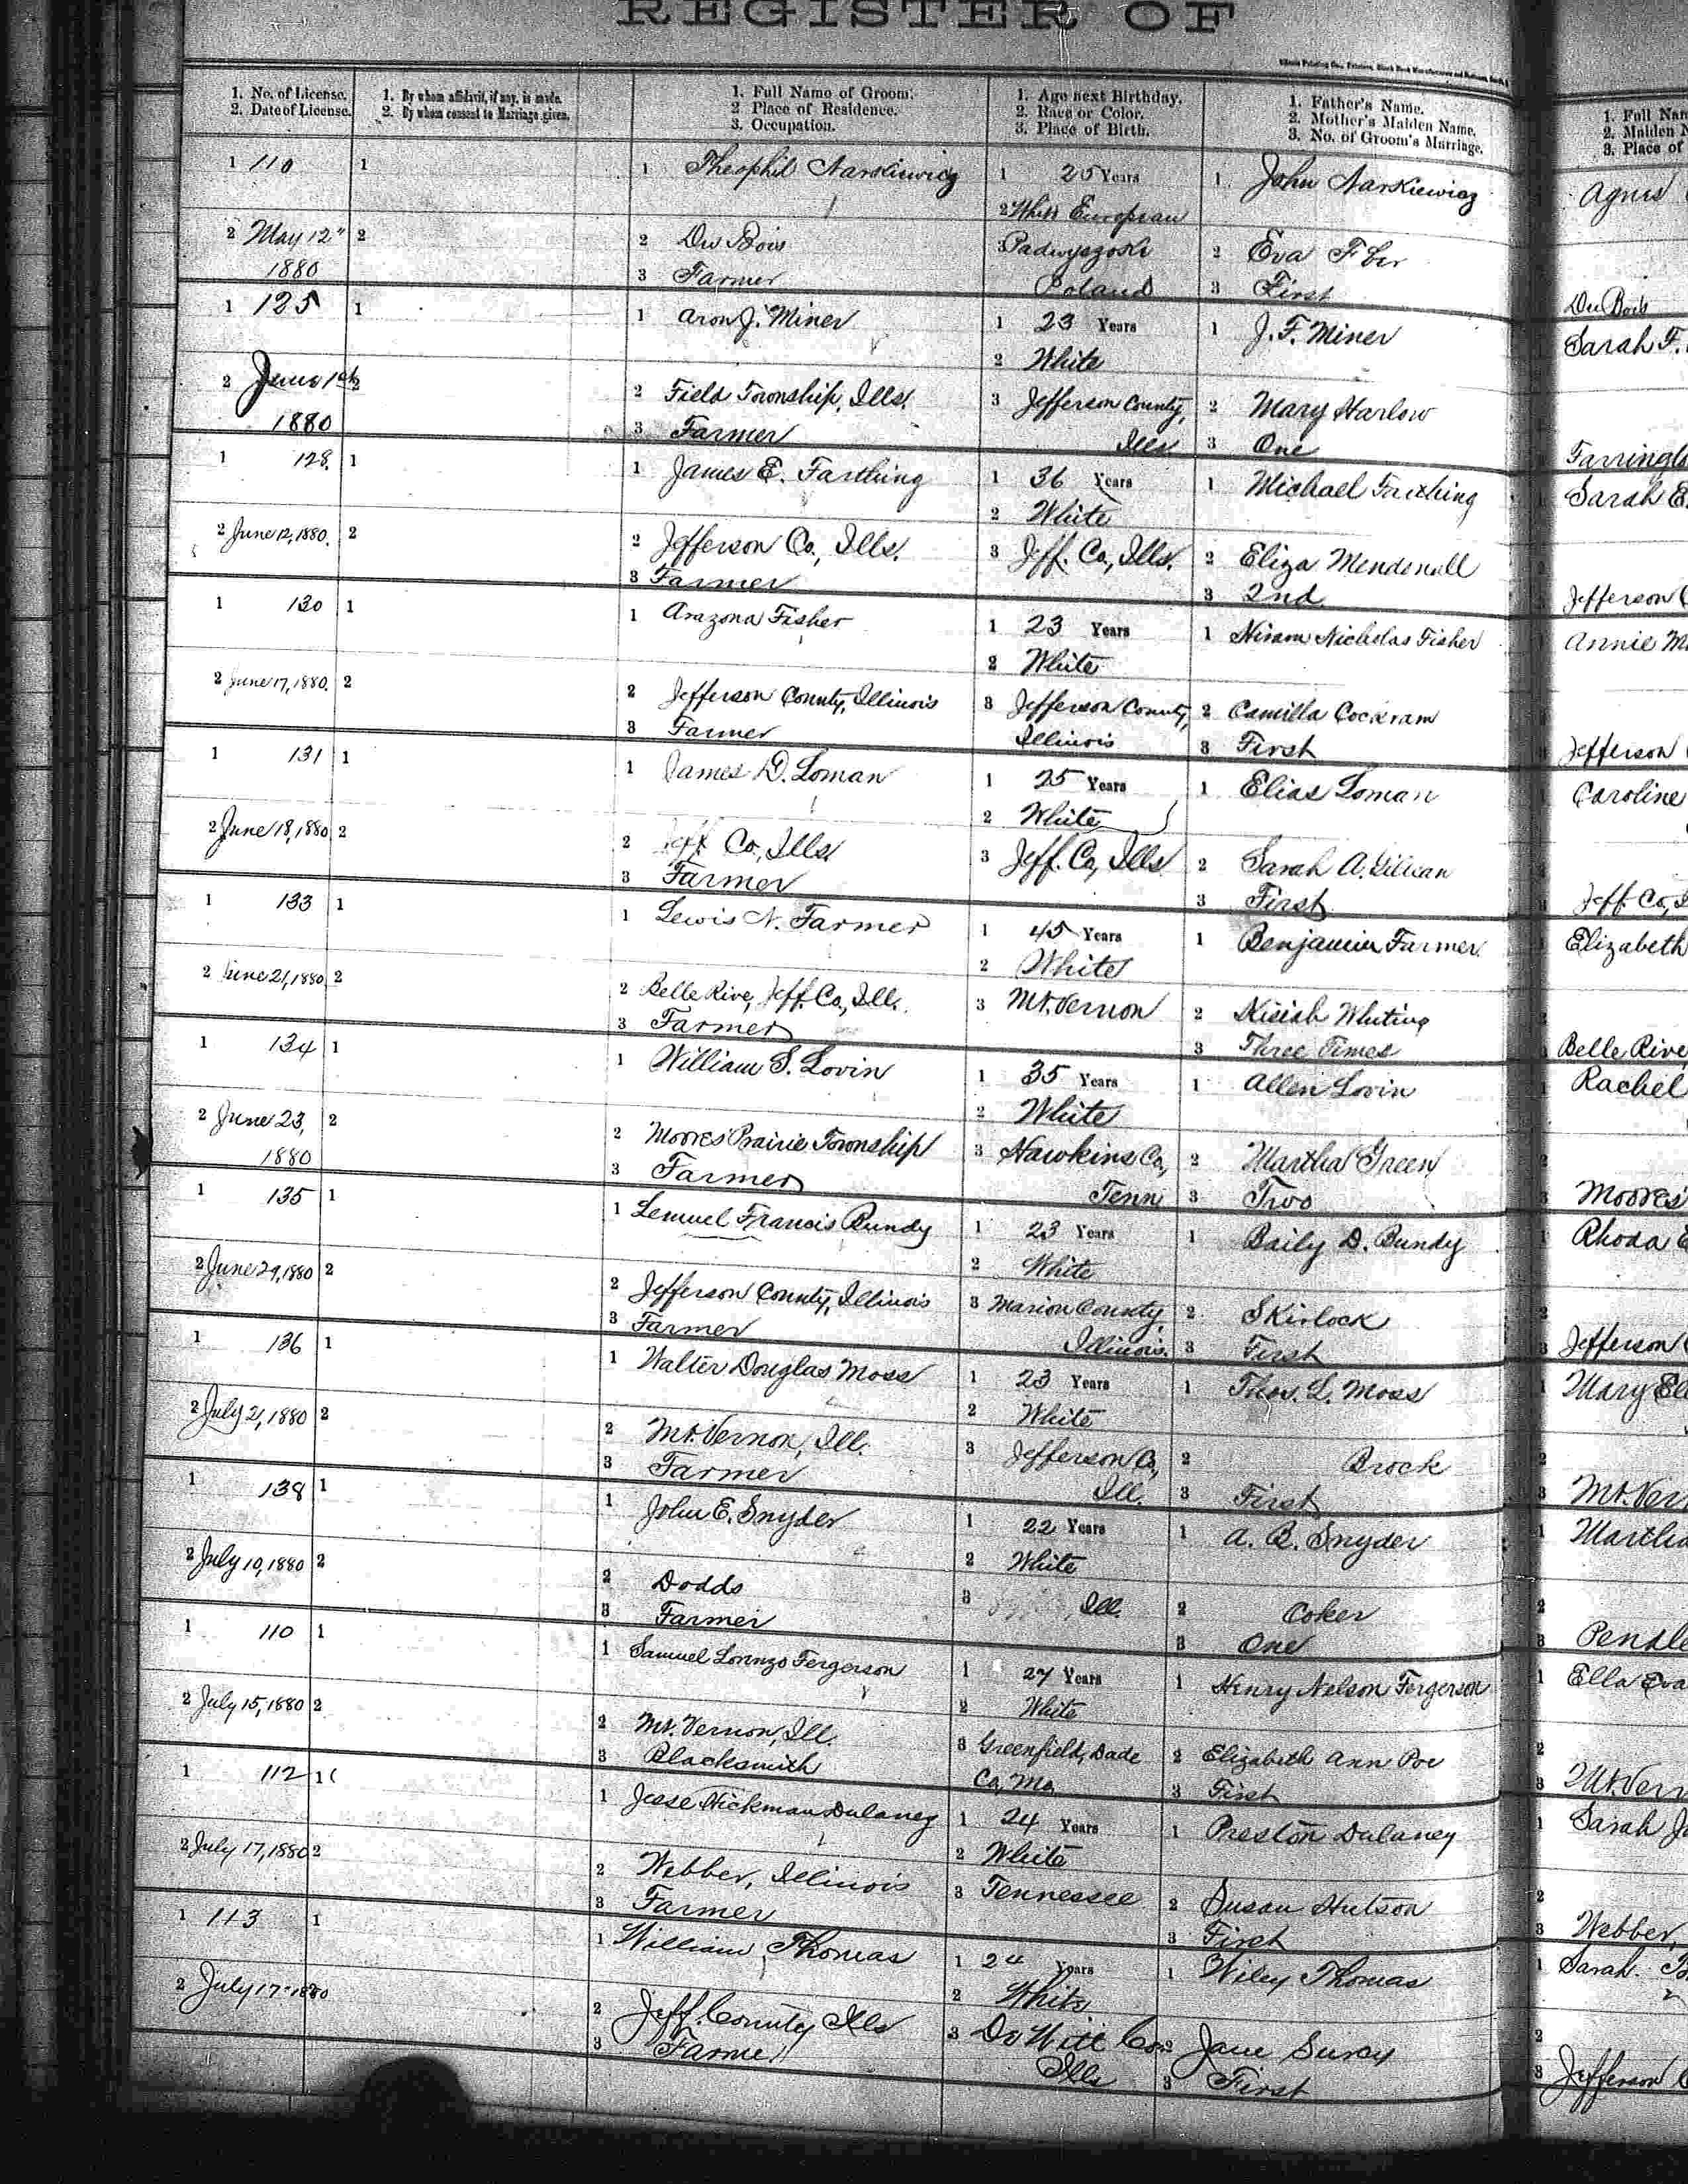 REGISTER OF
1. No. of License.
2. Date of License.
1. By whom affidavit, if any, is made.
2. By whom consent to Marriage given.
1. Full Name of Groom.
2 Place of Residence.
3. Occupation.
1. Age next Birthday.
2. Race or Color.
3. Place of Birth.
1. Father's Name.
2. Mother's Maiden Name.
3. No. of Groom's Marriage.
1. Full Nam
2. Maiden N
3. Place of
1 110 1 1 Theophil Narkiewicz 1 25 Years 1 John Narkiewicz Agnes
2 White European
2 May 12" 2 2 Du Bois 3 Padwyszoki 2 Eva
1880 3 Farmer Poland 3 First Du Bois
1 125 1 1 Aron J. Miner 1 23 Years 1 J. F. Miner Sarah F.
2 White
2 June 1st 2 2 Field Township, Ills. 3 Jefferson County, 2 Mary Harlow
1880 3 Farmer Ills 3 One Farringto
1 128. 1 1 James E. Farthing 1 36 Years 1 Michael Farthing Sarah E.
2 White
2 June 12, 1880. 2 2 Jefferson Co, Ills. 3 Jeff. Co, Ills. 2 Eliza Mendenall
3 Farmer 3 2nd Jefferson C
1 130 1 1 Arazona Fisher 1 23 Years 1 Hiram Nicholas Fisher Annie M
2 White
2 June 17, 1880. 2 2 Jefferson County, Illinois 3 Jefferson County, 2 Camilla Cockram
3 Farmer Illinois 3 First Jefferson
1 131 1 1 James D. Loman 1 25 Years 1 Elias Loman Caroline
2 White
2 June 18, 1880 2 2 Jeff Co, Ills 3 Jeff. Co, Ills 2 Sarah A.
3 Farmer 3 First Jeff Co,
1 133 1 1 Lewis N. Farmer 1 45 Years 1 Benjamin Farmer Elizabeth
2 White
2 June 21, 1880 2 2 Belle Rive, Jeff. Co, Ill. 3 Mt. Vernon 2 Kisiah Whiting
3 Farmer 3 Three Times Belle Rive,
1 134 1 1 William S. Lovin 1 35 Years 1 Allen Lovin Rachel
2 White
2 June 23, 2 2 Moores Prairie Township 3 Hawkins Co, 2 Martha Green
1880 3 Farmer Tenn 3 Two Moores
1 135 1 1 Lemuel Francis Bundy 1 23 Years 1 Baily D. Bundy Rhoda E
2 White
2 June 29, 1880 2 2 Jefferson County, Illinois 3 Marion County, 2 Skirlock
3 Farmer Illinois. 3 First Jefferson C
1 136 1 1 Walter Douglas Moss 1 23 Years 1 Thos. L. Moss Mary El
2 White
2 July 2, 1880 2 2 Mt. Vernon, Ill. 3 Jefferson Co, 2 Brock
3 Farmer Ill. 3 First Mt. Ver
1 138 1 1 John E. Snyder 1 22 Years 1 A. B. Snyder Martha
2 White
2 July 10, 1880 2 2 Dodds 3 Ill. 2 Coker
3 Farmer 3 One Pendle
1 110 1 1 Samuel Lorenzo Fergerson 1 27 Years 1 Henry Nelson Fergerson Ella Eva
2 White
2 July 15, 1880 2 2 Mt. Vernon, Ill. 3 Greenfield, Dade 2 Elizabeth Ann Poe
3 Blacksmith Co, Mo, 3 First Mt. Vern
1 112 1 1 Jesse Hickman Dulaney 1 24 Years 1 Preston Dulaney Sarah J
2 White
2 July 17, 1880 2 2 Webber, Illinois 3 Tennessee 2 Susan Hutson
3 Farmer 3 First Webber,
1 113 1 1 William Thomas 1 24 Years 1 Wiley Thomas Sarah.
2 White
2 July 17" 1880 2 Jeff. County Ills 3 De Witt Co. 2 Jane
3 Farmer Ills 3 First Jefferson C